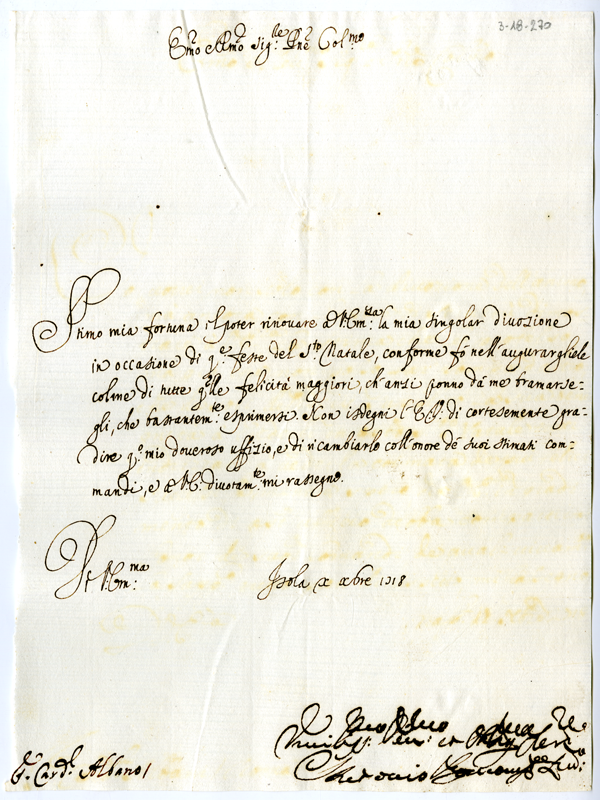 3-18-270
Em̃o e R̃mo Sig:re P̃ne Col:mo
Stimo mia fortuna il poter rinovare à V. Em:za la mia singolar divozione
in occasione di q.e feste del S.to Natale, conforme fò nell'augurargliele
colme di tutte q.lle felicità maggiori, ch'anzi ponno da me bramarse-
gli, che bastantem.te esprimersi. Non isdegni l'E.V. di cortesemente gra-
dire q.o mio doveroso uffizio, e di ricambiarlo coll'onore de suoi stimati com-
mandi, e à V.E. divotam.te mi rassegno.
Di V. Em:ma
Isola X Xbre 1718
S.r Card.l Albano